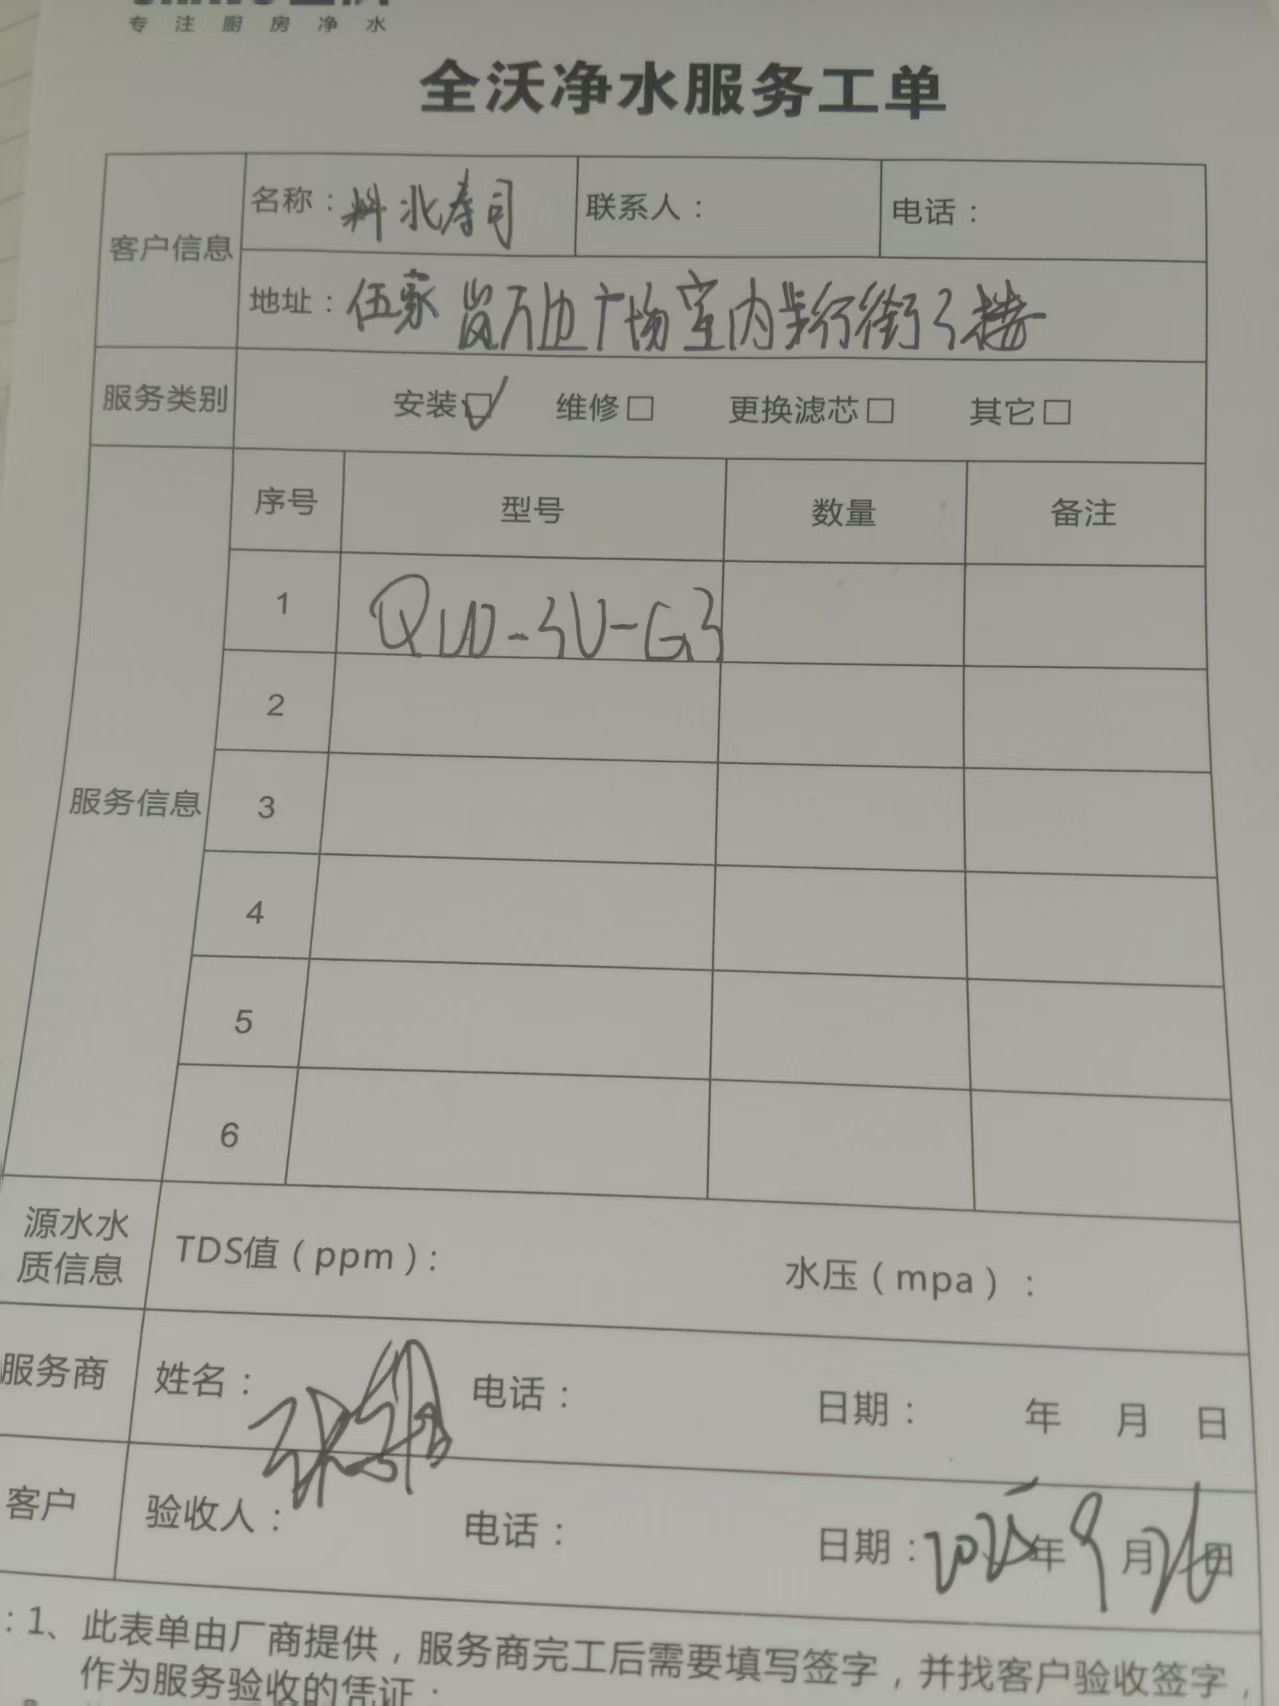 专注厨房净水
全沃净水服务工单
客户信息
名称：料北寿司 联系人： 电话：
地址：伍家岗万达广场室内步行街3楼
服务类别 安装☑ 维修□ 更换滤芯□ 其它□
服务信息
序号 型号 数量 备注
1 QUD-3U-G3
2
3
4
5
6
源水水质信息 TDS值（ppm）： 水压（mpa）：
服务商 姓名： 电话： 日期： 年 月 日
客户 验收人： 电话： 日期：2025年9月26日
：1、此表单由厂商提供，服务商完工后需要填写签字，并找客户验收签字，
作为服务验收的凭证；